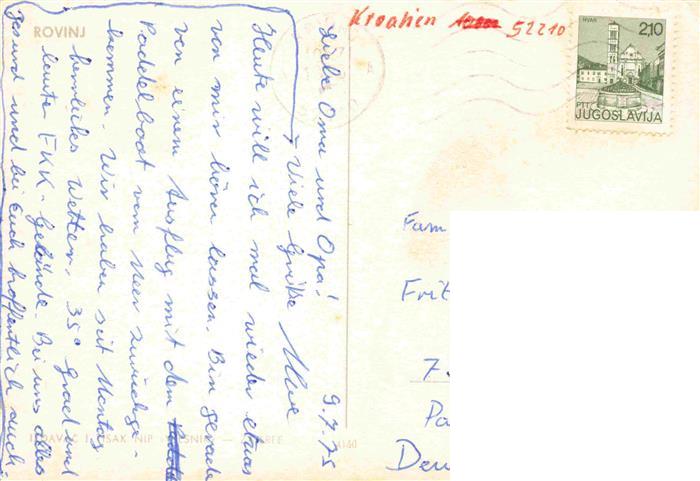 ROVINJ
Kroatien 52210
HVAR
2,10
PTT JUGOSLAVIJA
9.7.75
Liebe Oma und Opa!
Viele Grüße Uwe
Heute will ich mal wieder etwas
von mir hören lassen. Bin gerade
von einem Ausflug mit dem
Paddelboot vom Meer zurückge-
kommen. Wir haben seit Montag
herrliches Wetter. 35° Grad und
leute FKK-Gelände. Bei uns alles
gesund und bei Euch hoffentlich auch.
Fam
Frit
7
Pa
Deu